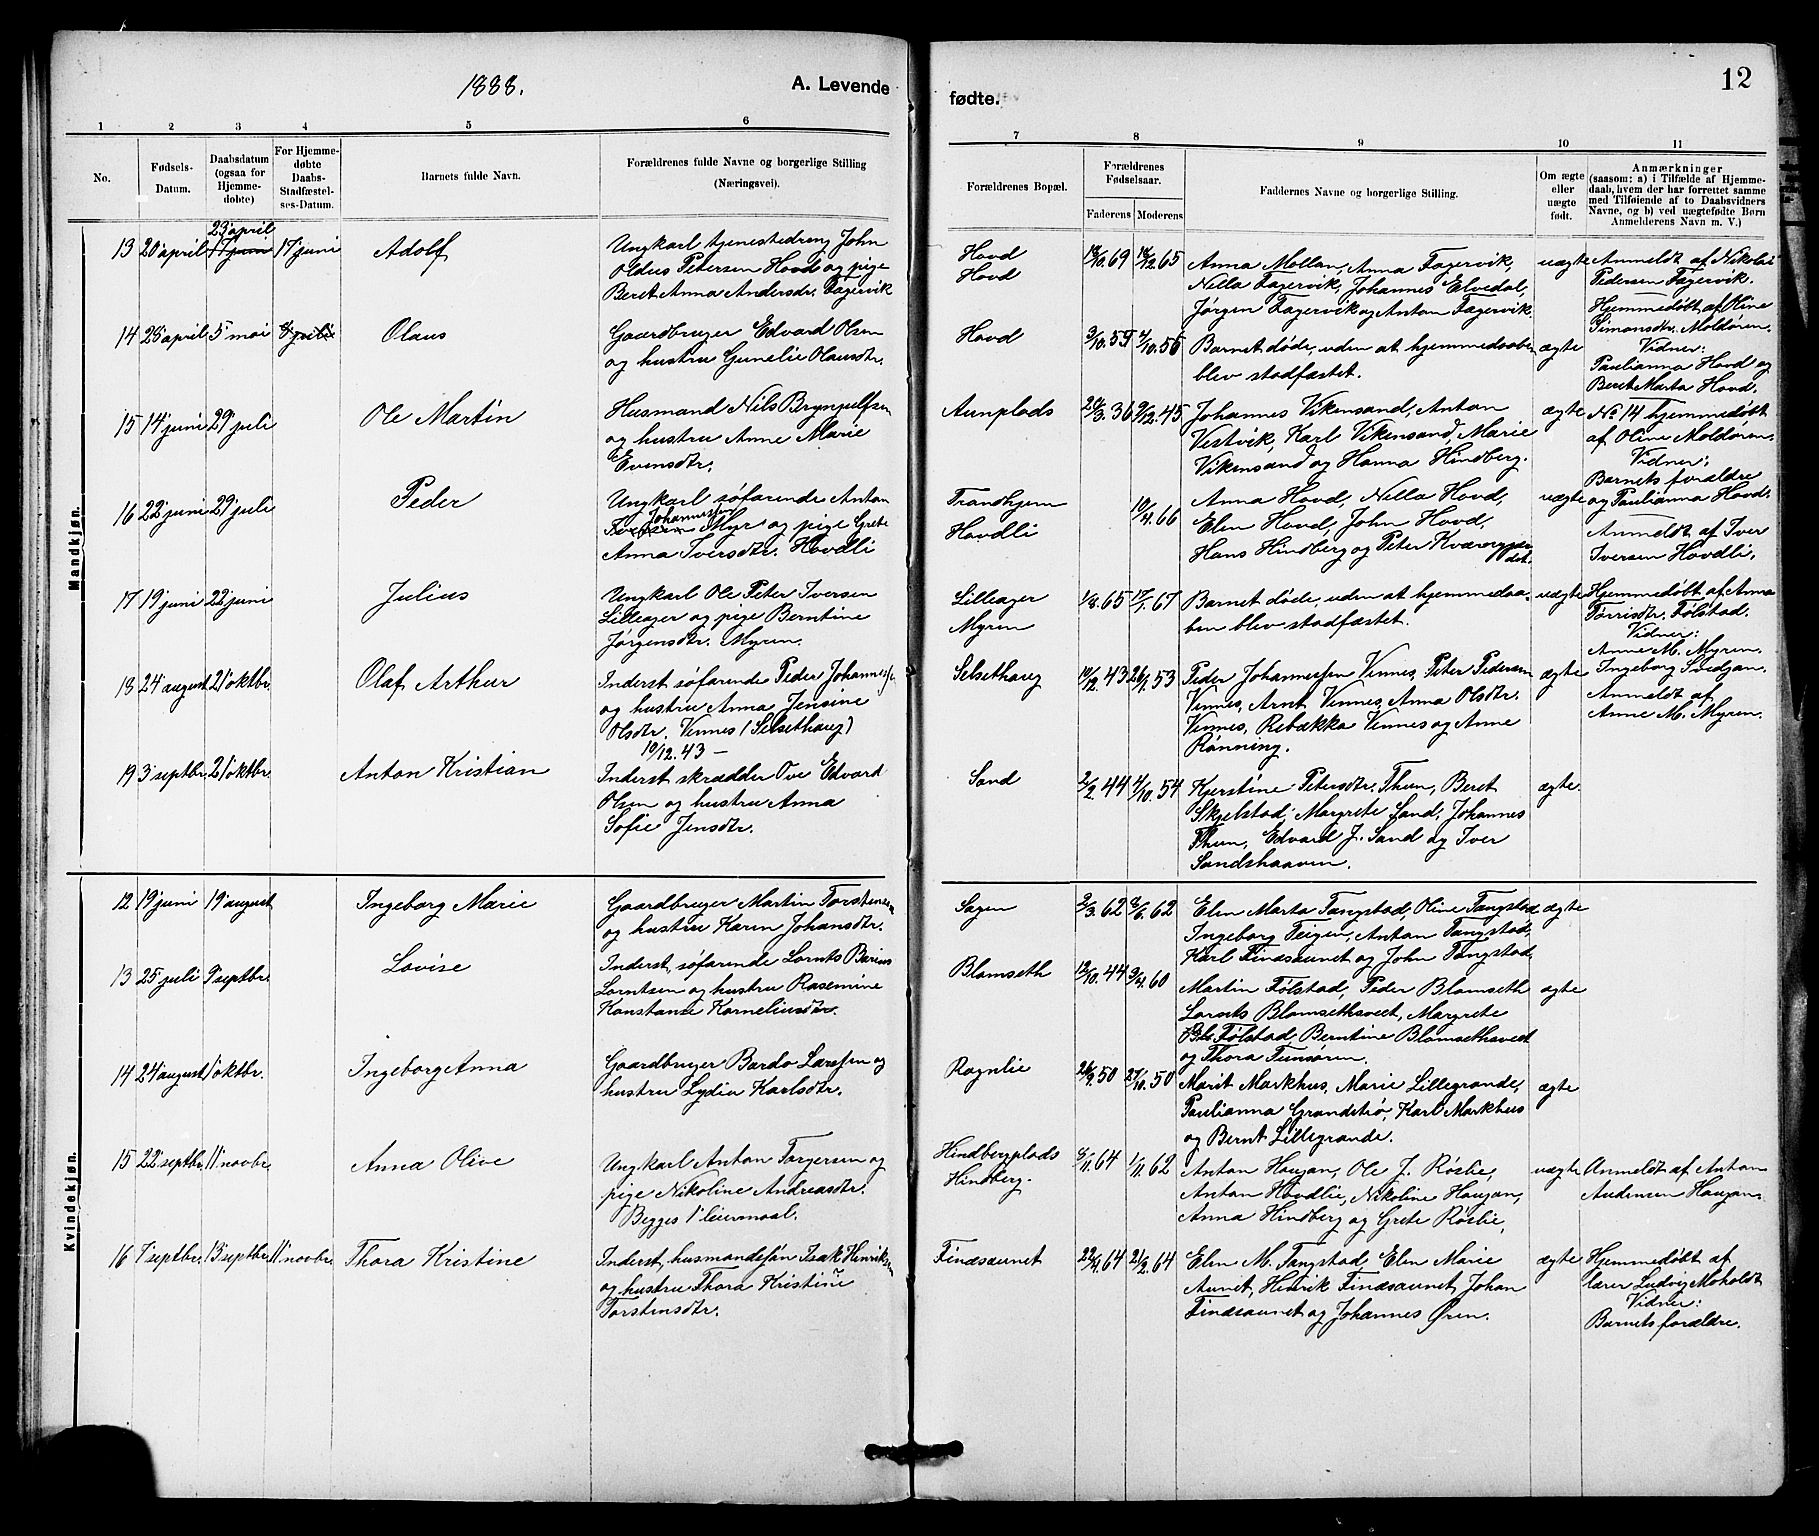 1888.
A. Levende
fødte.
12
1
2
3
4
5
6
7
8
9
10
11
No.
Fødsels-
Datum.
Daabsdatum
(ogsaa for
Hjemme-
døbte)
For Hjemme-
døbte
Daabs-
Stadfæstel-
ses-Datum.
Barnets fulde Navn.
Forældrenes fulde Navne og borgerlige Stilling
(Næringsvei).
Forældrenes Bopæl.
Forældrenes
Fødselsaar.
Faderens
Moderens
Faddernes Navne og borgerlige Stilling.
Om ægte
eller
uægte
født.
Anmærkninger
(saasom: a) i Tilfælde af Hjemme-
daab, hvem der har forrettet samme
med Tilføiende af to Daabsvidners
Navne, og b) ved uægtefødte Børn
Anmelderens Navn m. V.)
Mandkjøn.
13 20 april 23 april 17 juni 17 juni
Adolf
Ungkarl tjenestedreng John
Oldus Petersen Hovd og pige
Beret Anna Andersdr. Fagervik
Hovd
Hovd
69 65
Anna Mollan, Anna Fagervik,
Nella Fagervik, Johannes Elvedal,
Jørgen Fagervik og Anton Fagervik.
uægte
Anmeldt af Nikolai
Pedersen Fagervik.
Hjemmedøbt af Oline
Simonsdtr. Moldøren.
Vidner:
Paulianna Hovd og
Beret Marta Hovd.
14 28 april 5 mai
Olaus
Gaardbruger Edvard Olsen
og hustru Gunelie Olausdtr.
Hovd
3/10.59 4/10.56
Barnet døde, uden at hjemmedaaben
blev stadfæstet.
ægte
No 14 hjemmedøbt
af Oline Moldøren.
Vidner:
Barnets forældre
og Paulianna Hovd.
15 14 juni 29 juli
Ole Martin
Husmand Nils Brynjulfsen
og hustru Anne Marie
Evensdtr.
Aunplads
36 9/12.45
Johannes Vikensand, Anton
Vestvik, Karl Vikensand, Marie
Vikensand og Hanna Hindberg.
ægte
16 22 juni 29 juli
Peder
Ungkarl søfarende Anton
Johannessen
Myr og pige Grete
Anna Iversdtr. Hovdli
Trondhjem
Hovdli
10/4.66
Anna Hovd, Nella Hovd,
Elen Hovd, John Hovd,
Hans Hindberg og Peter
uægte
Anmeldt af Iver
Iversen Hovdli.
17 19 juni 22 juni
Julius
Ungkarl Ole Peter Iversen
Lilleager og pige Berntine
Jørgensdtr. Myren.
Lilleager
Myren
1/8.65 67
Barnet døde, uden at hjemmedaa-
ben blev stadfæstet.
uægte
Hjemmedøbt af Anna
Tørrisdtr. Følstad.
Vidner:
Anne M. Myren.
Ingeborg Svedjan.
Anmeldt af
Anne M. Myren.
18 24 august 21 oktbr.
Olaf Arthur
Inderst søfarende Peder Johannesen
og hustru Anna Jensine
Olsdtr. Vinnes (Selsethaug)
10/12.43 –
Selsethaug
10/12.43 26/1.53
Peder Johannessen Vinnes, Peter Pedersen
Vinnes, Arnt Vinnes, Anna Olsdtr.
Vinnes, Rebækka Vinnes og Anne
Rønning.
ægte
19 3 septbr. 21 oktbr.
Anton Kristian
Inderst skrædder Ove Edvard
Olsen og hustru Anna
Sofie Jensdtr.
Sand
2/2.44 4/10.54
Kjerstine Petersdtr. Thun, Beret
Skjelstad, Margrete Sand, Johannes
Thun, Edvard J. Sand og Iver
Sandshaaven.
ægte.
Kvindekjøn.
12 19 juni 19 august
Ingeborg Marie
Gaardbruger Martin Torstensen
og hustru Karen Johansdtr.
Sagen
3/3.62 62
Elen Marta Tangstad, Oline Tangstad,
Ingeborg Teigen, Anton Tangstad,
Karl Findsaunet og John Tangstad.
ægte
13 25 juli 9 septbr.
Lovise
Inderst, søfarende Lornts Barius
Lorntsen og hustru Rasemine
Konstanse Korneliusdtr.
Blamseth
12/10.44 9/4.60
Martin Følstad, Peder Blamseth
Lornts Blamsethsveet, Margrete
Følstad, Berntine Blamsethsveet
og Thora Tunsøren.
ægte
14 24 august 1 oktbr.
Ingeborg Anna
Gaardbruger Bardo Larsen og
hustru Lydia Karlsdtr.
Rognlie
26/9.50 27/10.50
Marit Markhus, Marie Lillegrande,
Paulianna Grandstrø, Karl Markhus
og Bernt Lillegrande.
ægte
15 22 septbr. 11 novbr.
Anna Olive
Ungkarl Anton Torgersen og
pige Nikoline Andreasdtr.
Begges 1' leiermaal.
Hindbergplads
Hindberg.
64 1/11.62
Anton Haugan, Ole J. Røslie,
Anton Hovdlie, Nikoline Haugan,
Anna Hindberg og Grete Røslie,
uægte
Anmeldt af Anton
Andersen Haugan.
16 7 septbr. 13 septbr. 11 novbr.
Thora Kristine
Inderst, husmandssøn Isak Henriksen
og hustru Thora Kristine
Torstensdtr.
Findsaunet
22/4.64 21/2.64
Elen M. Tangstad, Elen Marie
Aunet, Henrik Findsaunet, Johan
Findsaunet og Johannes Øren.
ægte
Hjemmedøbt af
lærer Ludvig Moholdt
Vidner:
Barnets forældre.